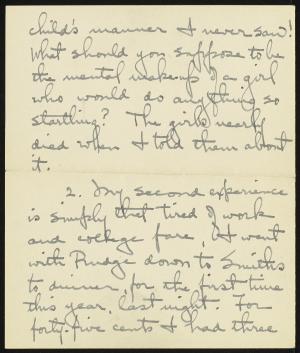 child's manner I never saw!
What should you suppose to be
the mental make-up of a girl
who would do anything so
startling? The girls nearly
died when I told them about
it.
2. My second experience
is simply that tired of work
and college fare, I went
with Pudge down to Smiths
to dinner, for the first time
this year, last night. For
forty-five cents I had three